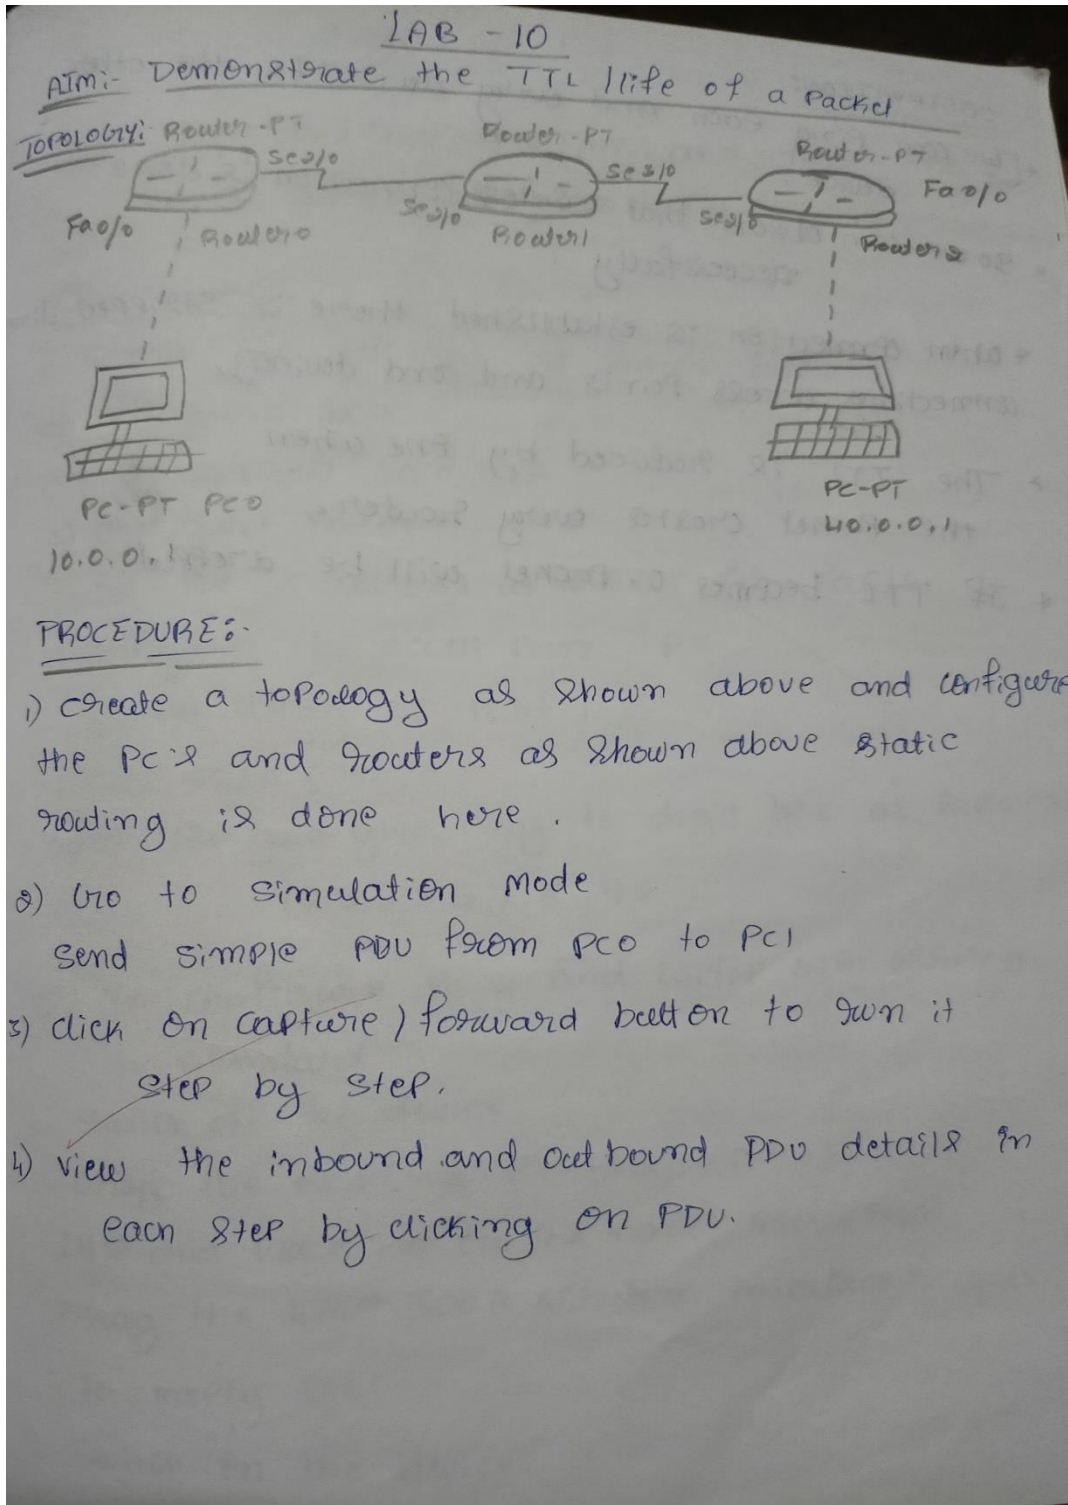 LAB - 10
AIM:- Demonstrate the TTL llife of a Packet
TOPOLOGY: Router-PT Router-PT Router-PT
Se2/0 Se3/0 Fa0/0
Fa0/0 Router0 Se2/0 Router1 Se2/0 Router2
PC-PT PC0 PC-PT
10.0.0.1 40.0.0.1
PROCEDURE:-
1) create a topology as shown above and configure
the PC's and routers as shown above static
routing is done here.
2) Go to simulation mode
send simple PDU from PC0 to PC1
3) click on capture / forward button to run it
step by step.
4) view the inbound and outbound PDU details in
each step by clicking on PDU.